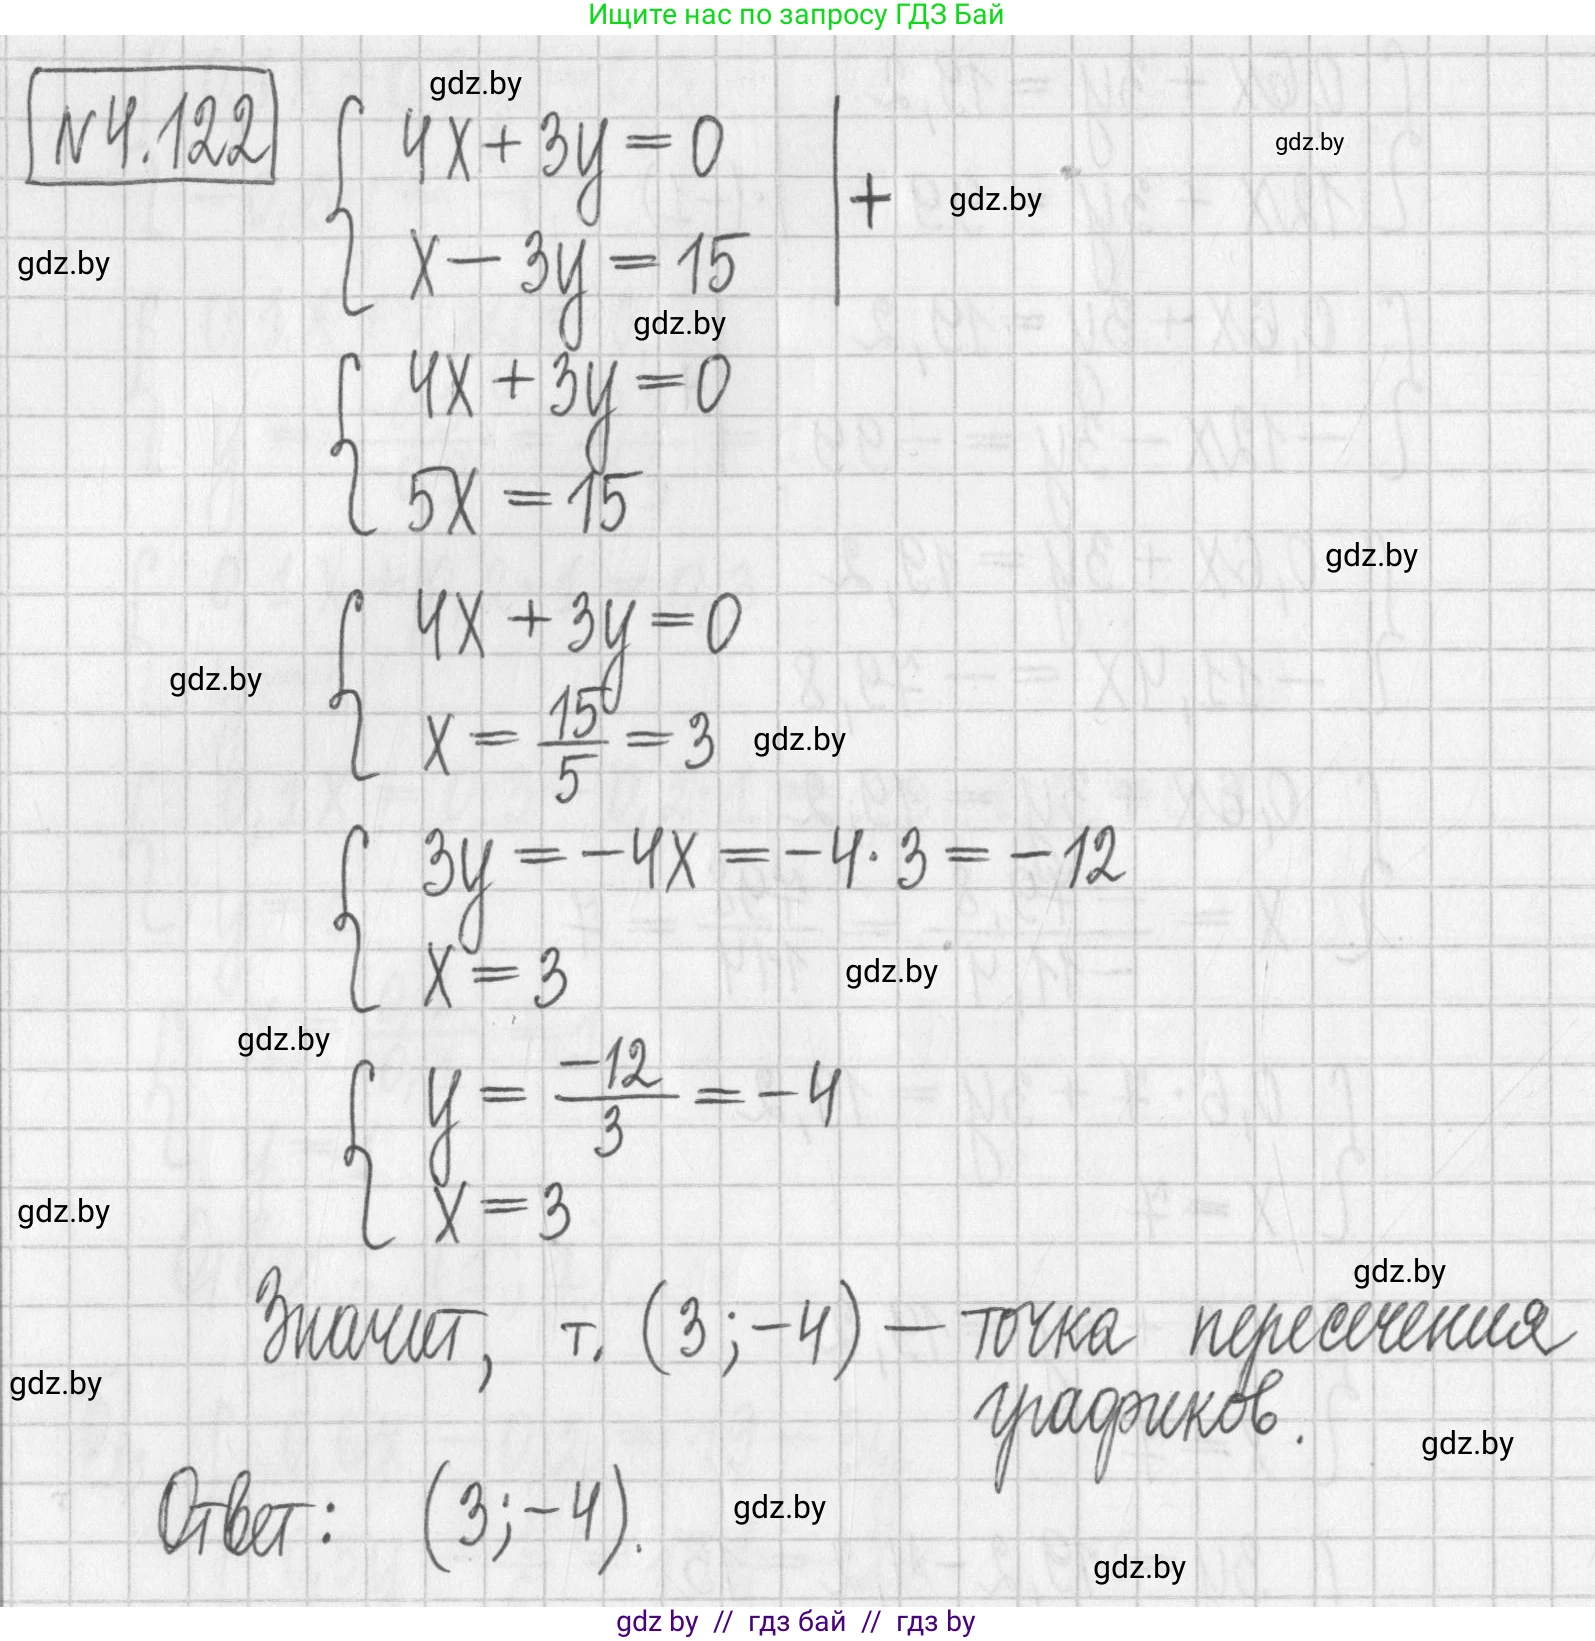 Ищите нас по запросу ГДЗ Бай
gdz.by
N4.122
4x + 3y = 0
+
gdz.by
gdz.by
x − 3y = 15
gdz.by
gdz.by
4x + 3y = 0
5x = 15
gdz.by
4x + 3y = 0
gdz.by
x = 15/5 = 3
gdz.by
3y = −4x = −4·3 = −12
x = 3
gdz.by
gdz.by
y = −12/3 = −4
x = 3
gdz.by
gdz.by
Значит, т. (3; −4) — точка пересечения
gdz.by
графиков.
gdz.by
Ответ: (3; −4).
gdz.by
gdz.by
gdz by // гдз бай // гдз by